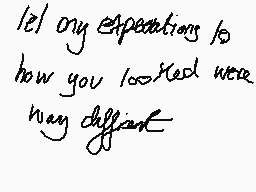 lel my expectations to
how you looked were
way diffirent